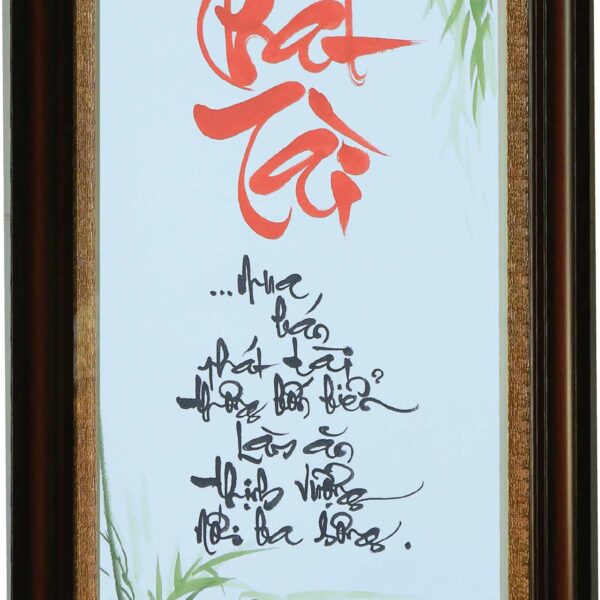 Phát
Tài
...Mua
bán
phát tài
thông bốn biển
Làm ăn
thịnh vượng
nối ba sông.